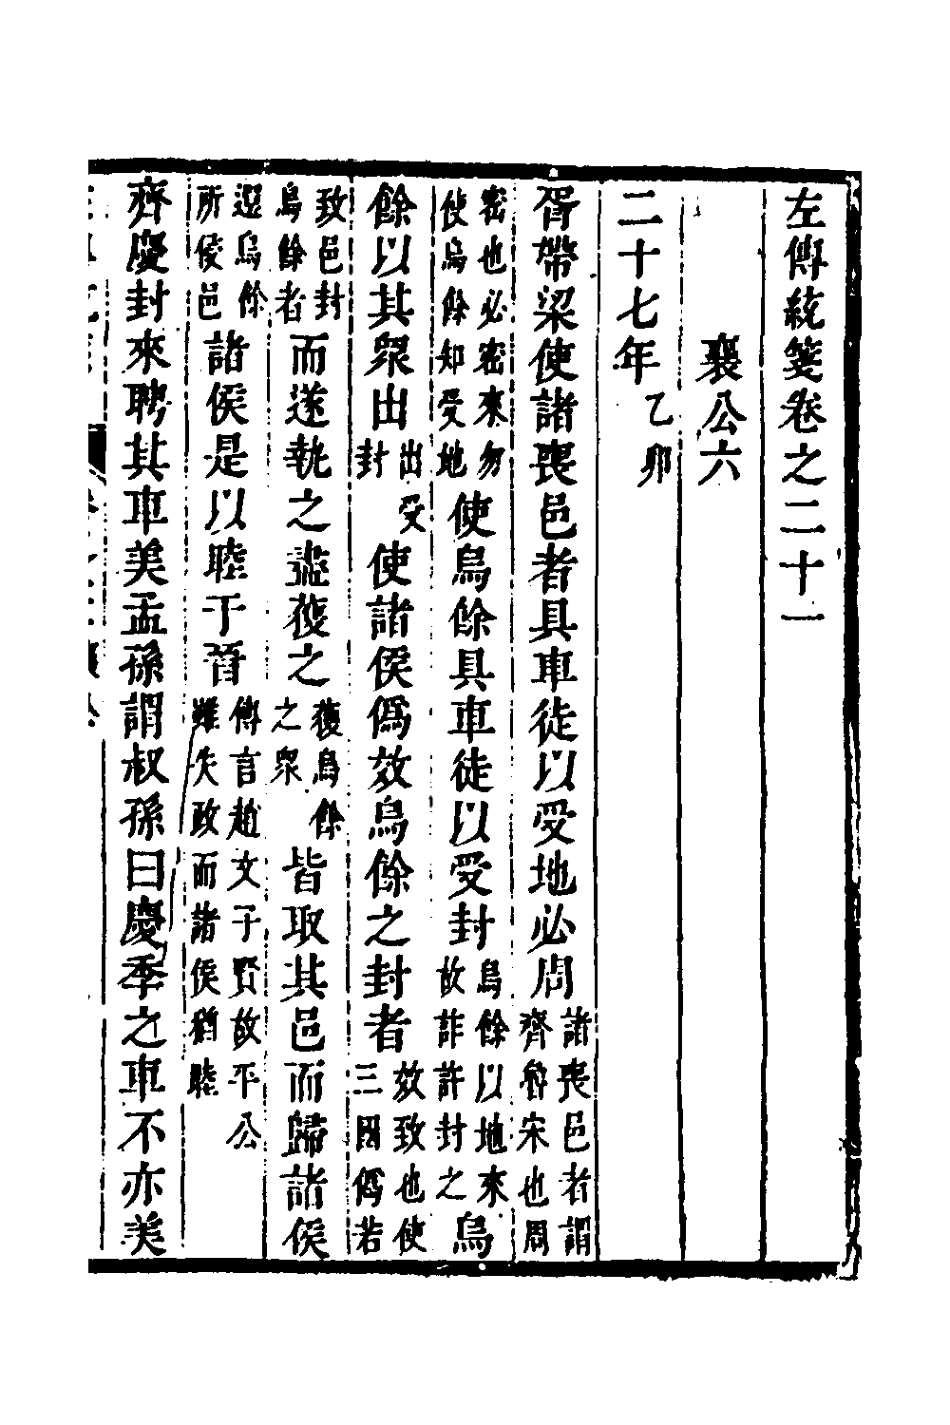 左傳統箋卷之二十一
襄公六
二十七年乙卯
胥帶梁使諸喪邑者具車徒以受地必周諸喪邑者謂齊魯宋也周
密也必密來勿使烏餘知受地使烏餘具車徒以受封烏餘以地來故詐許封之烏
餘以其眾出出受封使諸侯偽效烏餘之封者效致也使三國偽若
致邑封烏餘者而遂執之盡獲之獲烏餘之眾皆取其邑而歸諸侯
還烏餘所侵邑諸侯是以睦于晉傳言趙文子賢故平公雖失政而諸侯猶睦
齊慶封來聘其車美孟孫謂叔孫曰慶季之車不亦美